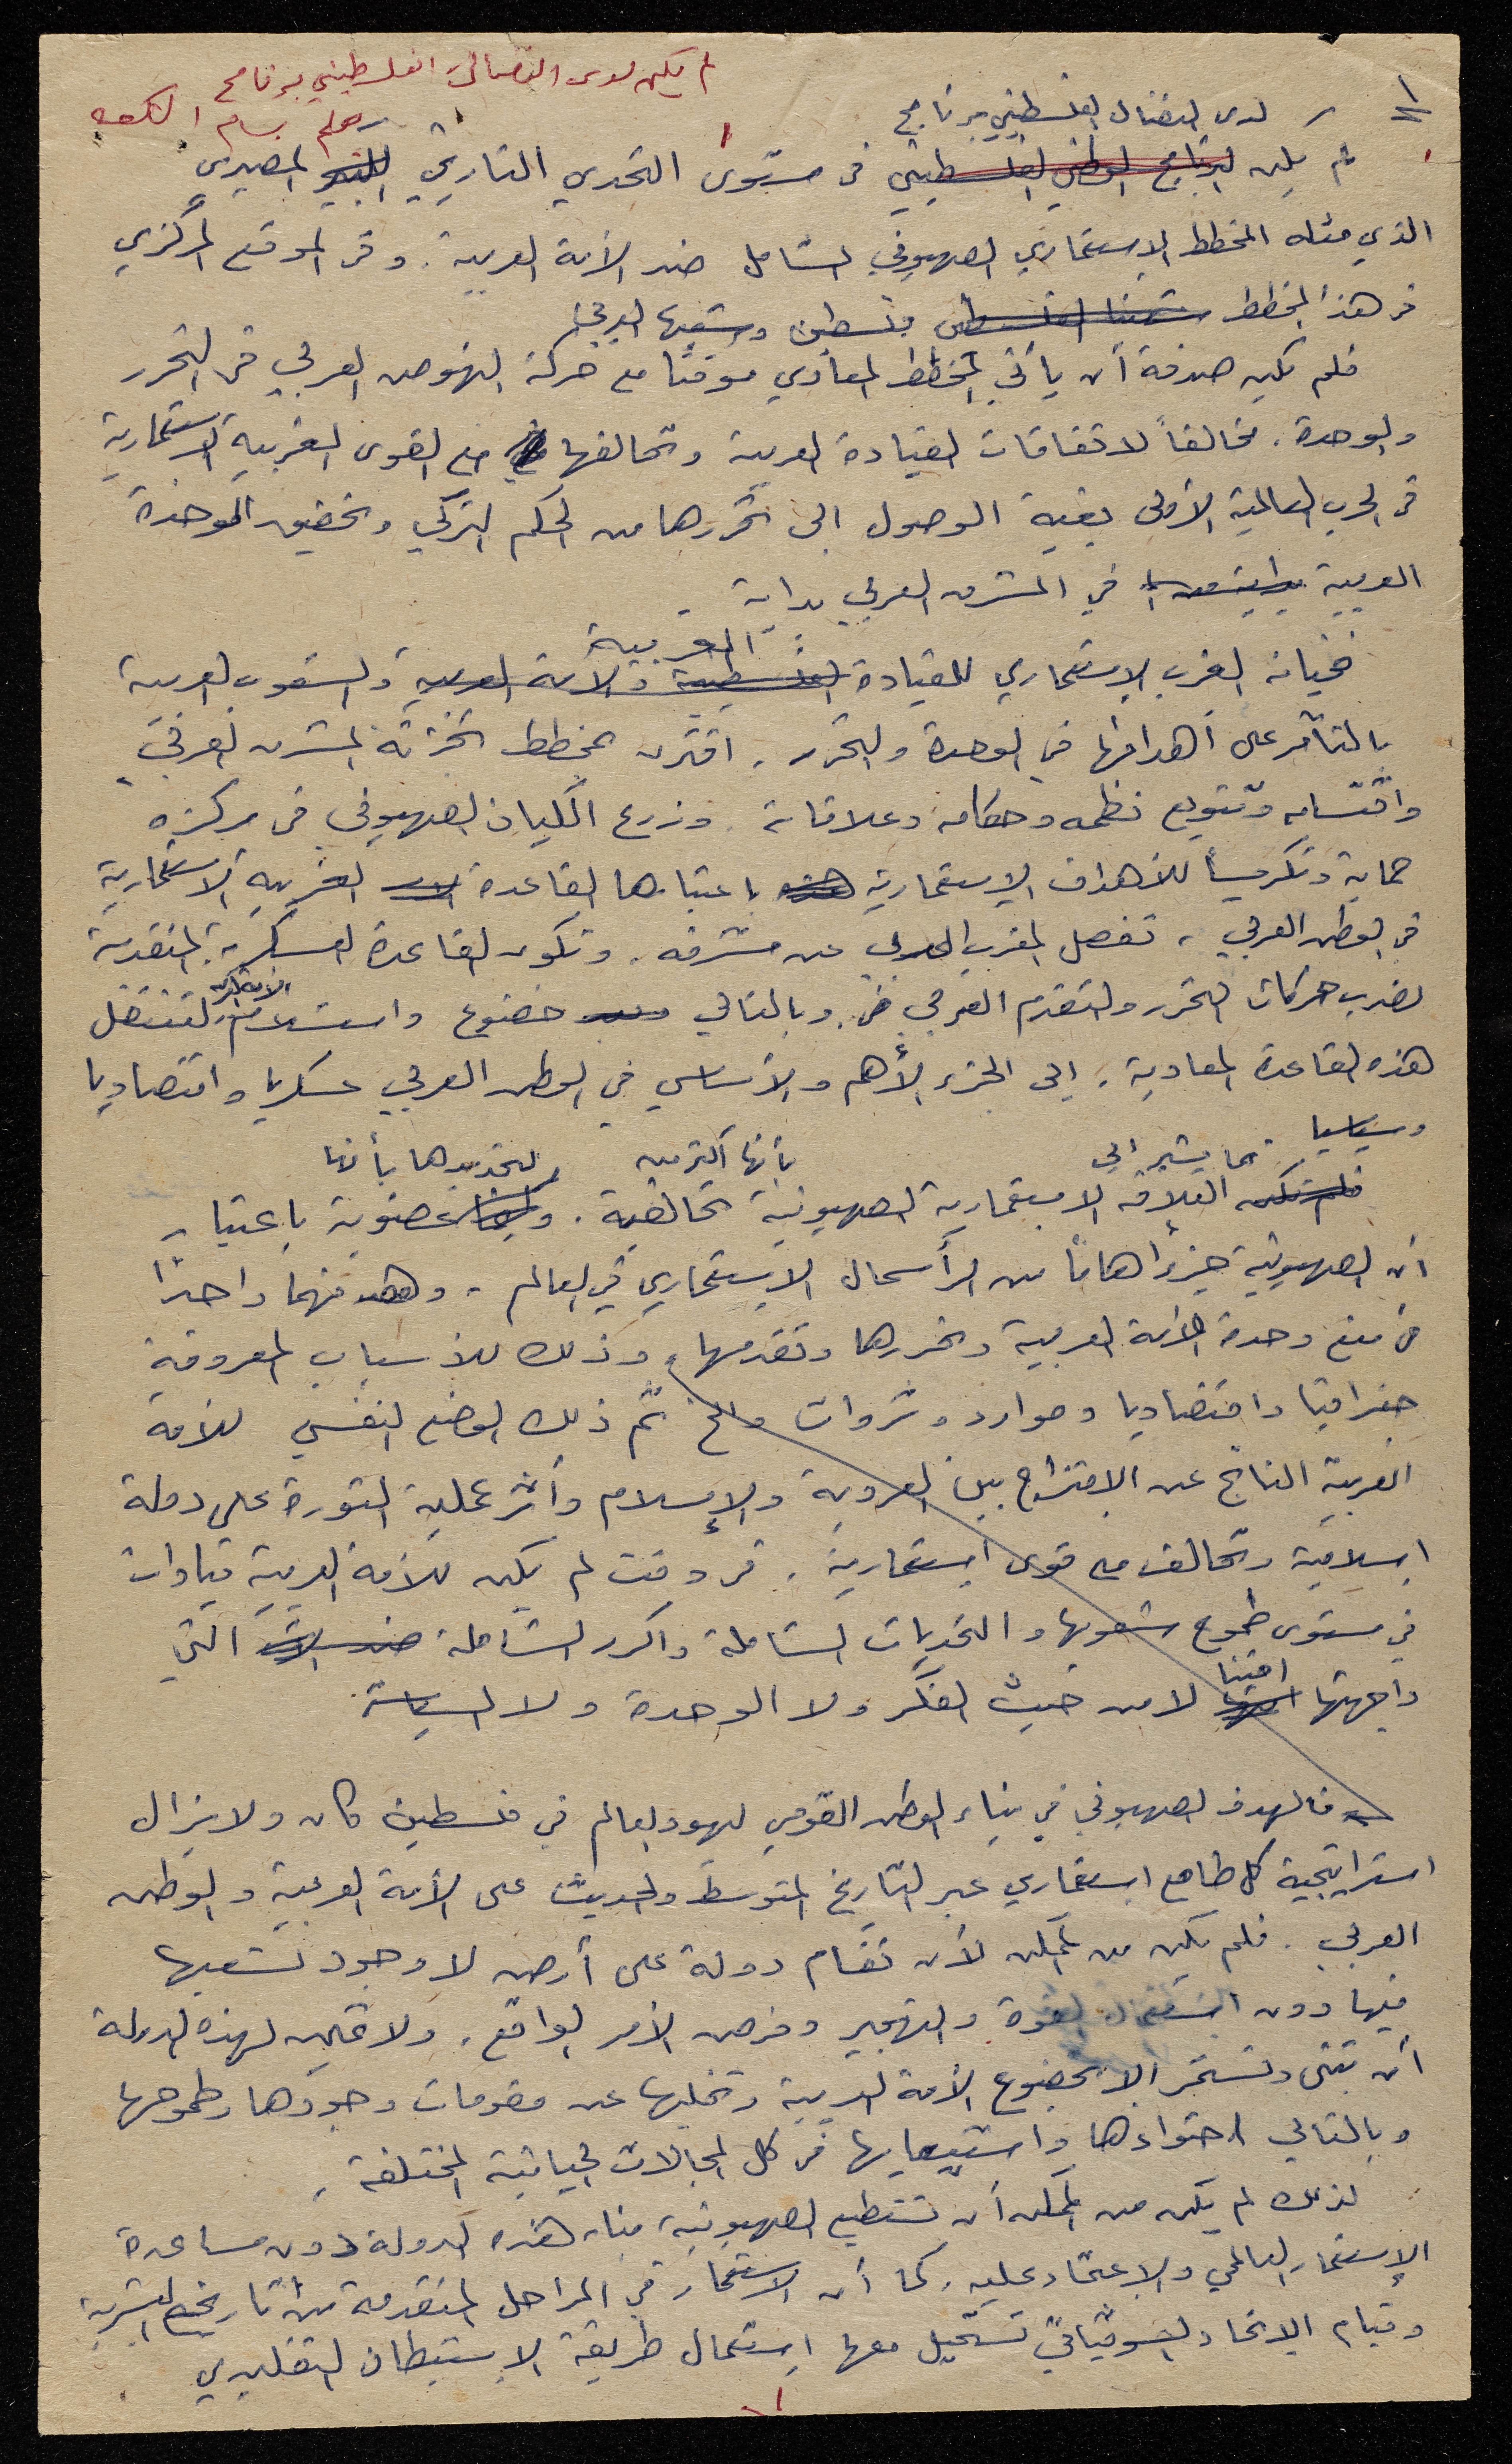 لم يكن لدى النضال الفلسطيني برنامج
بقلم بسام الكعبه
١
لدى النضال الفلسطيني برنامج
لم يكن البرنامج الوطني الفلسطيني في مستوى التحدي التاريخي المصيري
الذي مثله المخطط الإستعماري الصهيوني الشامل ضد الأمة العربية. وفي الموقع المركزي
في هذا المخطط شعبنا الفلسطيني فلسطين وشعبها العربي.
فلم تكن صدفة أن يأتي المخطط المعادي موقتا مع حركة النهوض العربي في التحرر
والوحدة. مخالفاً لاتفاقات القيادة العربية وتحالفها مع القوى الغربية الاستعمارية
في الحرب العالمية الأولى بغية الوصول الى تحررها من الحكم التركي وتحقيق الوحدة
العربية في المشرق العربي بداية.
العربية
فخيانة الغرب الإستعماري للقيادة الفلسطينية والأمة العربية والشعوب العربية
بالتآمر على أهدافها في الوحدة والتحرر، اقترن بمخطط تجزئة المشرق العربي
واقتسامه وتنويع نظمه وحكامه وعلاقاته. وزرع الكيان الصهيوني في مركزه
حماية وتكريساً للأهداف الإستعمارية هذه باعتبارها القاعدة الغربية الاستعمارية
في الوطن العربي، تفصل المغرب العربي عن مشرقه. وتكون القاعدة العسكرية المتقدمة
لضرب حركات التحرر والتقدم العربي. وبالتالي خضوع واستسلام لتنتقل
هذه القاعدة المعادية، إلى الجزء الأهم والأساسي في الوطن العربي عسكريا واقتصاديا
وسياسيا. مما يشير الى بأنها أكثر من لتحديدها بأنها
فلم تكن العلاقة الاستعمارية الصهيونية تحالفية. وإنما عضوية باعتبار
أن الصهيونية جزءًا هامًا من الرأسمال الاستعماري في العالم. وهدفهما واحدًا
في منع وحدة الأمة العربية وتحررها وتقدمها، وذلك للأسباب المعروفة
جغرافيا واقتصاديا وموارد وثروات والخ ثم ذلك الوضع النفسي للأمة
العربية الناتج عن الإمتزاج بين العروبة والإسلام وأثر عملية الثورة على دولة
إسلامية وتحالف مع قوى إستعمارية. في وقت لم يكن للأمة العربية قيادات
في مستوى طموح شعوبها والتحديات الشاملة والرد الشاملة التي
واجهتها امتنا لا من حيث الفكر ولا الوحدة ولا السياسة.
فالهدف الصهيوني في بناء الوطن القومي ليهود العالم في فلسطين كان ولا يزال
استراتيجية كل طامع استعماري عبر التاريخ المتوسط والحديث على الأمة العربية والوطن
العربي. فلم يكن من الممكن لأن تقام دولة على أرض لا وجود لشعبها
فيها دون استعمال القوة والتهجير وفرض الأمر الواقع. ولا يمكن لهذه الدولة
أن تبنى وتستمر إلا بخضوع الأمة العربية وتخليها عن مقومات وجودها وطموحها
وبالتالي احتواءها واستيعابها في كل المجالات الحياتية المختلفة.
لذلك لم يكن من الممكن أن تستطيع الصهيونية بناء هذه الدولة دون مساعدة
الإستعمار العالمي والإعتماد عليه. كما أن الاستعمار في المراحل المتقدمة من تاريخ البشرية
وقيام الإتحاد السوفياتي تستحيل معها إستعمال طريقة الإستيطان التقليدي
١